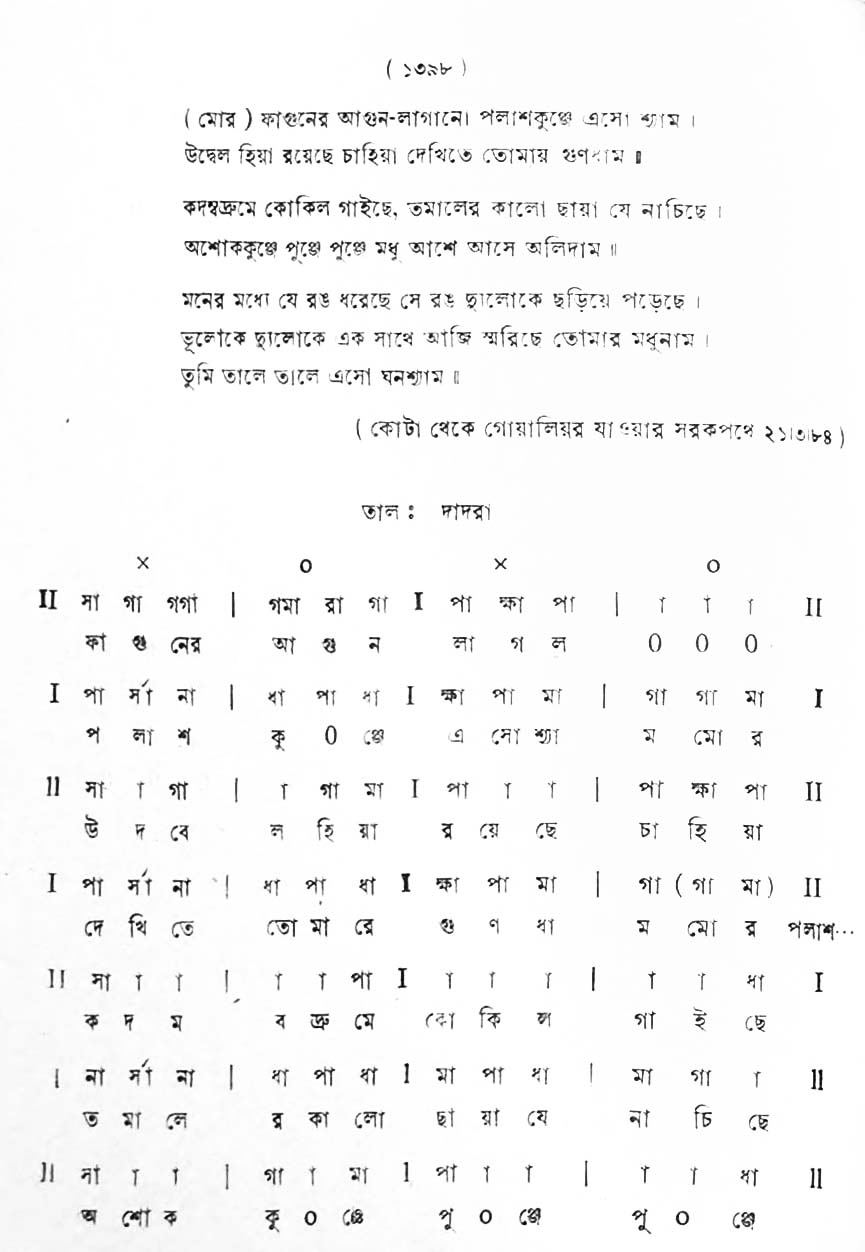 ( ১৩৯৮ )
( মোর ) ফাগুনের আগুন-লাগানো পলাশকুঞ্জে এসো শ্যাম ।
উদ্বেল হিয়া রয়েছে চাহিয়া দেখিতে তোমায় গুণধাম ॥
কদম্বদ্রুমে কোকিল গাইছে, তমালের কালো ছায়া যে নাচিছে ।
অশোককুঞ্জে পুঞ্জে পুঞ্জে মধু আশে আসে অলিদাম ॥
মনের মধ্যে যে রঙ ধরেছে সে রঙ দ্যুলোকে ছড়িয়ে পড়েছে ।
ভূলোকে দ্যুলোকে এক সাথে আজি স্মরিছে তোমার মধুনাম ।
তুমি তালে তালে এসো ঘনশ্যাম ॥
( কোটা থেকে গোয়ালিয়র যাওয়ার সরকপথে ২১।৩।৮৪ )
তাল : দাদরা
× ০ × ০
II সা গা গগা | গমা রা গা I পা ক্ষা পা | া া া II
ফা গু নের আ গু ন লা গ ল 0 0 0
I পা র্সা না | ধা পা ধা I ক্ষা পা মা | গা গা মা I
প লা শ কু 0 ঞ্জে এ সো শ্যা ম মো র
II সা া গা | া গা মা I পা া া | পা ক্ষা পা II
উ দ বে ল হি য়া র য়ে ছে চা হি য়া
I পা র্সা না | ধা পা ধা I ক্ষা পা মা | গা ( গা মা ) II
দে খি তে তো মা রে গু ণ ধা ম মো র পলাশ···
II সা া া | া া পা I া া া | া া ধা I
ক দ ম ব দ্রু মে কো কি ল গা ই ছে
I না র্সা না | ধা পা ধা I মা পা ধা | মা গা া II
ত মা লে র কা লো ছা য়া যে না চি ছে
II সা া া | গা া মা I পা া া | া া ধা II
অ শো ক কু ০ ঞ্জে পু ০ ঞ্জে পু ০ ঞ্জে